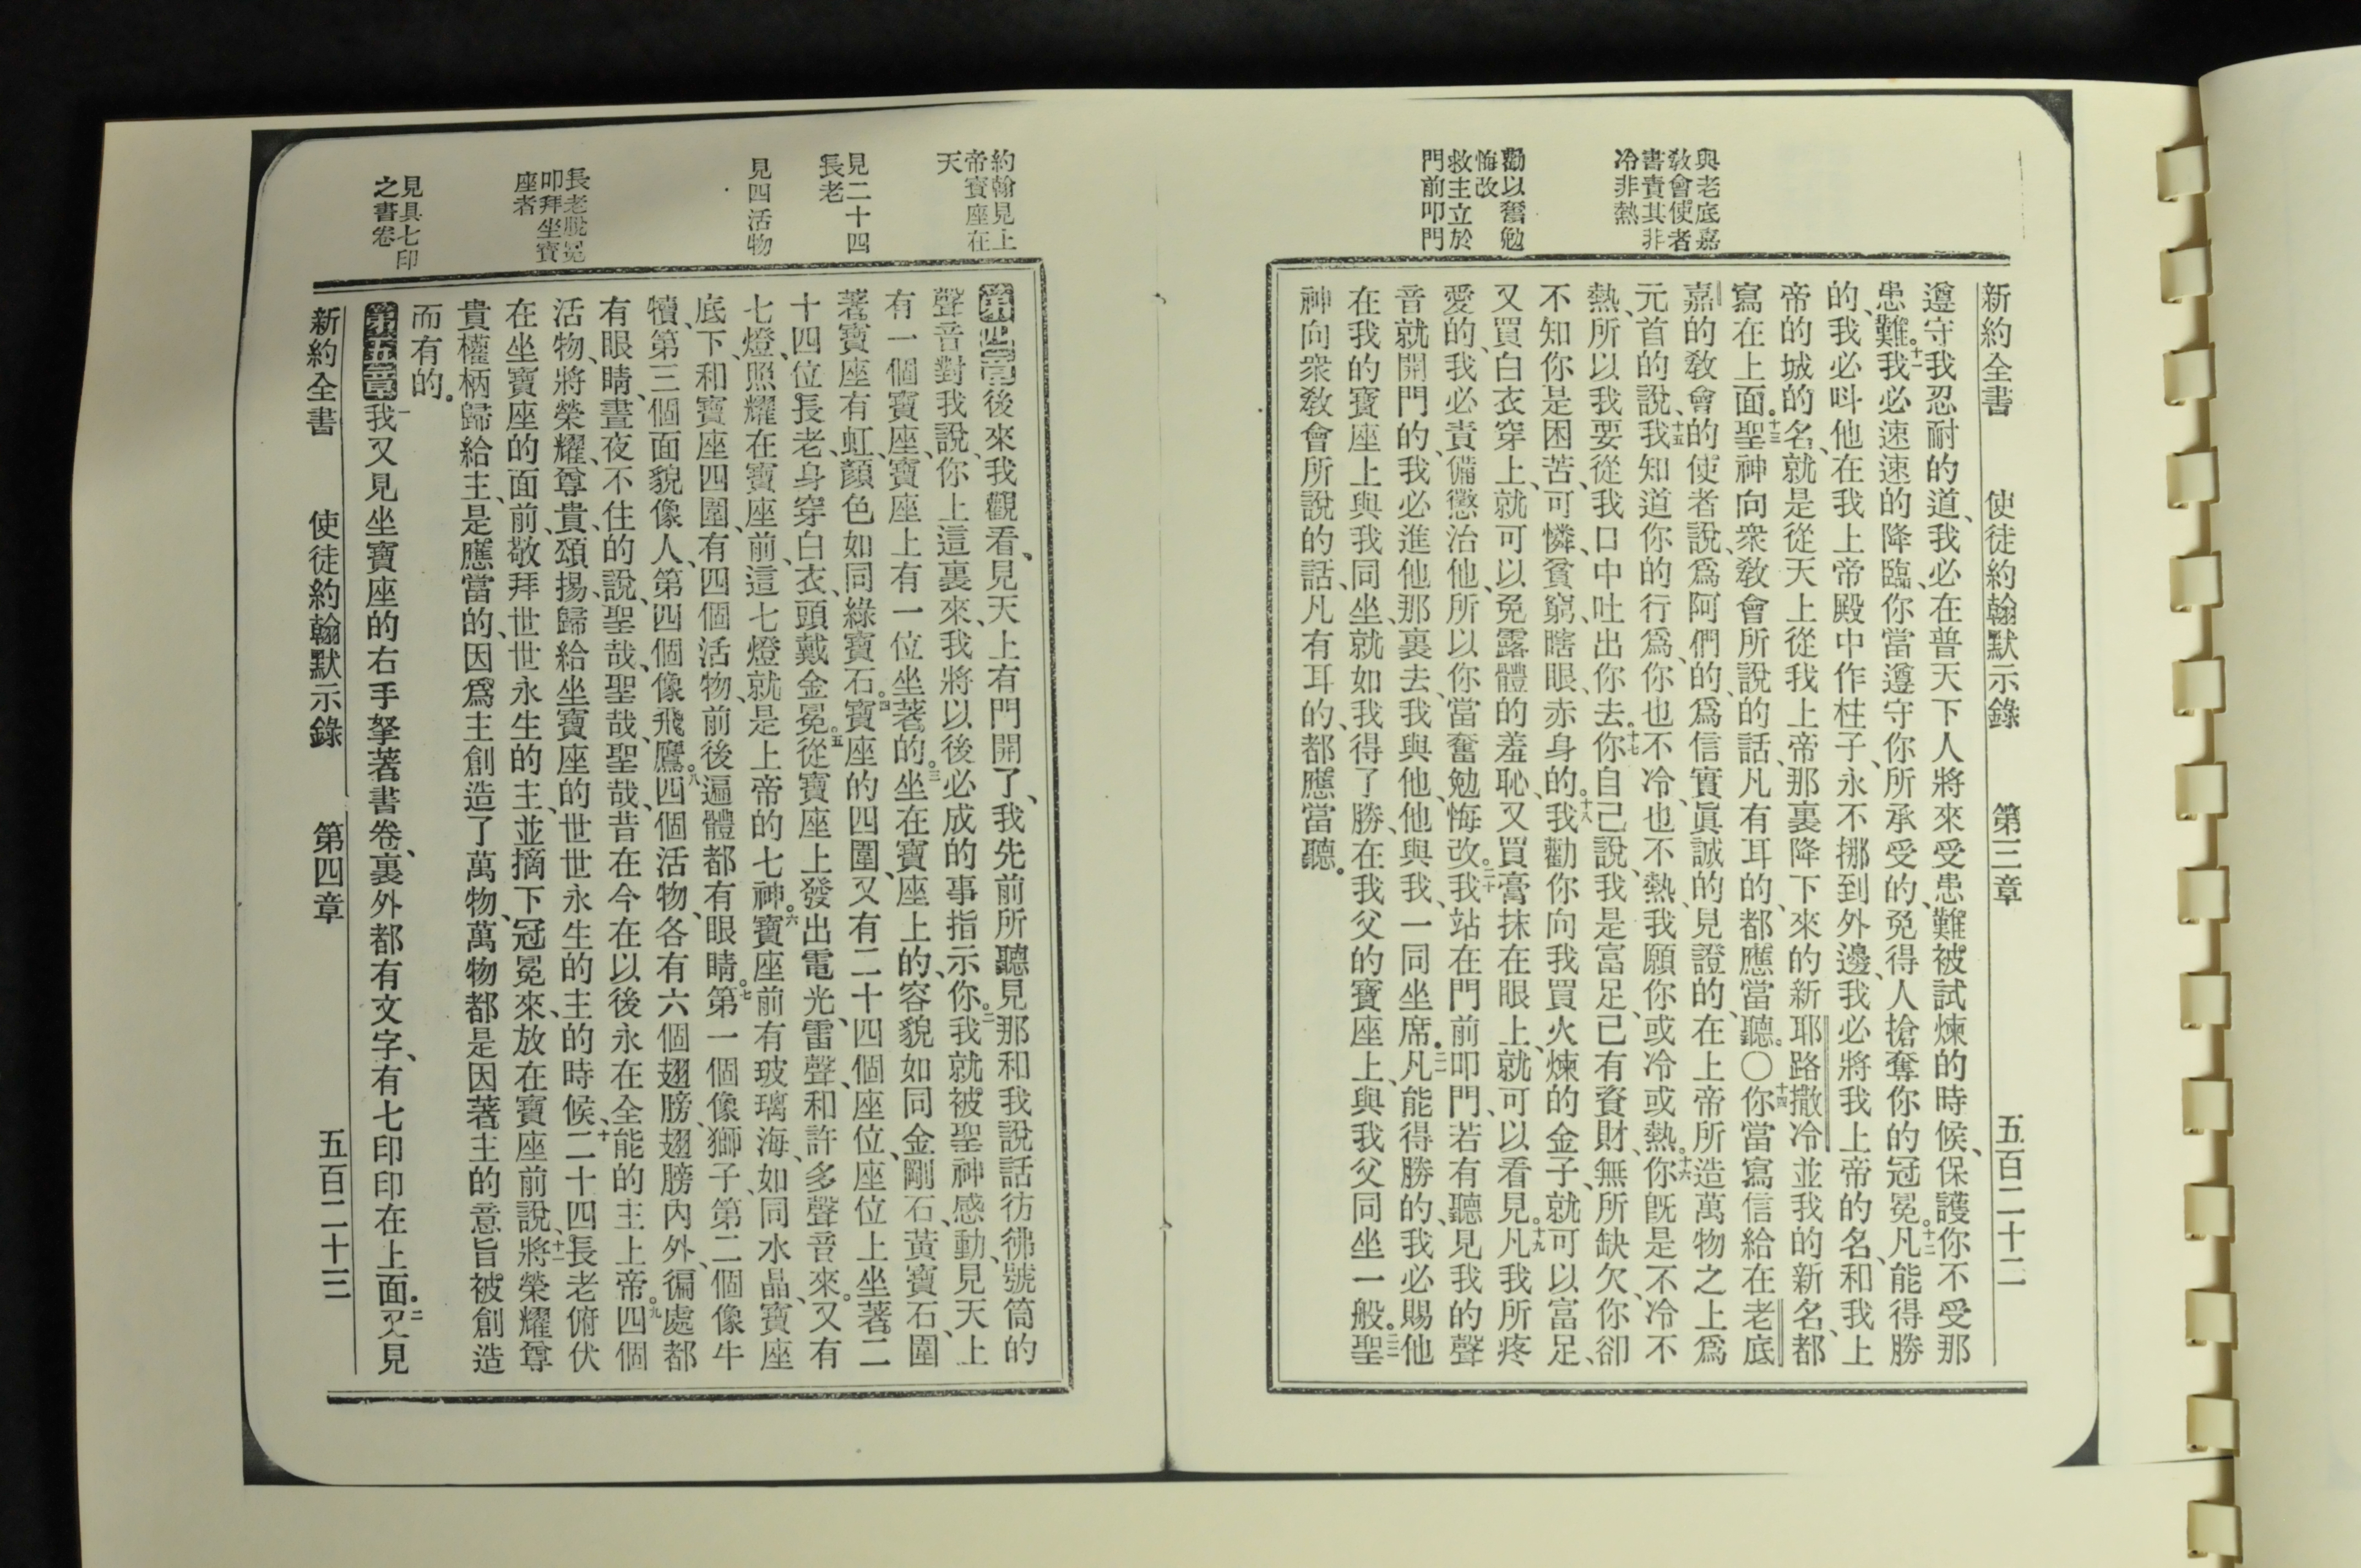 新約全書　使徒約翰默示錄　第三章　五百二十二
與老底嘉
敎會使者
書責其非
冷非熱
勸以奮勉
悔改
救主立於
門前叩門
遵守我忍耐的道、我必在普天下人將來受患難被試煉的時候、保護你不受那
患難。十一我必速速的降臨、你當遵守你所承受的、免得人搶奪你的冠冕。十二凡能得勝
的、我必呌他在我上帝殿中作柱子、永不挪到外邊、我必將我上帝的名、和我上
帝的城的名、就是從天上從我上帝那裏降下來的新耶路撒冷、並我的新名、都
寫在上面。十三聖神向衆敎會所說的話、凡有耳的、都應當聽。〇十四你當寫信給在老底
嘉的敎會的使者說、爲阿們的、爲信實眞誠的見證的、在上帝所造萬物之上爲
元首的說、十五我知道你的行爲、你也不冷、也不熱、我願你或冷或熱。十六你旣是不冷不
熱、所以我要從我口中吐出你去。十七你自己說、我是富足、已有資財、無所缺欠、你卻
不知你是困苦、可憐、貧窮、瞎眼、赤身的。十八我勸你向我買火煉的金子、就可以富足、
又買白衣穿上、就可以免露體的羞恥、又買膏抹在眼上、就可以看見。十九凡我所疼
愛的、我必責備懲治他、所以你當奮勉、悔改。二十我站在門前叩門、若有聽見我的聲
音就開門的、我必進他那裏去、我與他、他與我、一同坐席。二一凡能得勝的、我必賜他
在我的寶座上與我同坐、就如我得了勝、在我父的寶座上、與我父同坐一般。二二聖
神向衆敎會所說的話、凡有耳的、都應當聽。
約翰見上
帝寶座在
天
見二十四
長老
見四活物
長老脫冕
叩拜坐寶
座者
見具七印
之書卷
第四章後來我觀看、見天上有門開了、我先前所聽見那和我說話彷彿號筒的
聲音對我說、你上這裏來、我將以後必成的事指示你。二我就被聖神感動、見天上
有一個寶座、寶座上有一位坐著的。三坐在寶座上的、容貌如同金剛石、黃寶石、圍
著寶座有虹、顏色如同綠寶石。四寶座的四圍、又有二十四個座位、座位上坐著二
十四位長老、身穿白衣、頭戴金冕。五從寶座上發出電光、雷聲、和許多聲音來。又有
七燈、照耀在寶座前、這七燈就是上帝的七神。六寶座前有玻璃海、如同水晶、寶座
底下、和寶座四圍、有四個活物、前後遍體都有眼睛。七第一個像獅子、第二個像牛
犢、第三個面貌像人、第四個像飛鷹。八四個活物、各有六個翅膀、翅膀內外、徧處都
有眼睛、晝夜不住的說、聖哉、聖哉、聖哉、昔在今在以後永在全能的主上帝。九四個
活物、將榮耀、尊貴、頌揚、歸給坐寶座的世世永生的主的時候、十二十四長老俯伏
在坐寶座的面前、敬拜世世永生的主、並摘下冠冕來、放在寶座前說、十一將榮耀尊
貴權柄歸給主、是應當的、因爲主創造了萬物、萬物都是因著主的意旨被創造
而有的。
第五章一我又見坐寶座的右手拏著書卷、裏外都有文字、有七印印在上面。二又見
新約全書　使徒約翰默示錄　第四章　五百二十三